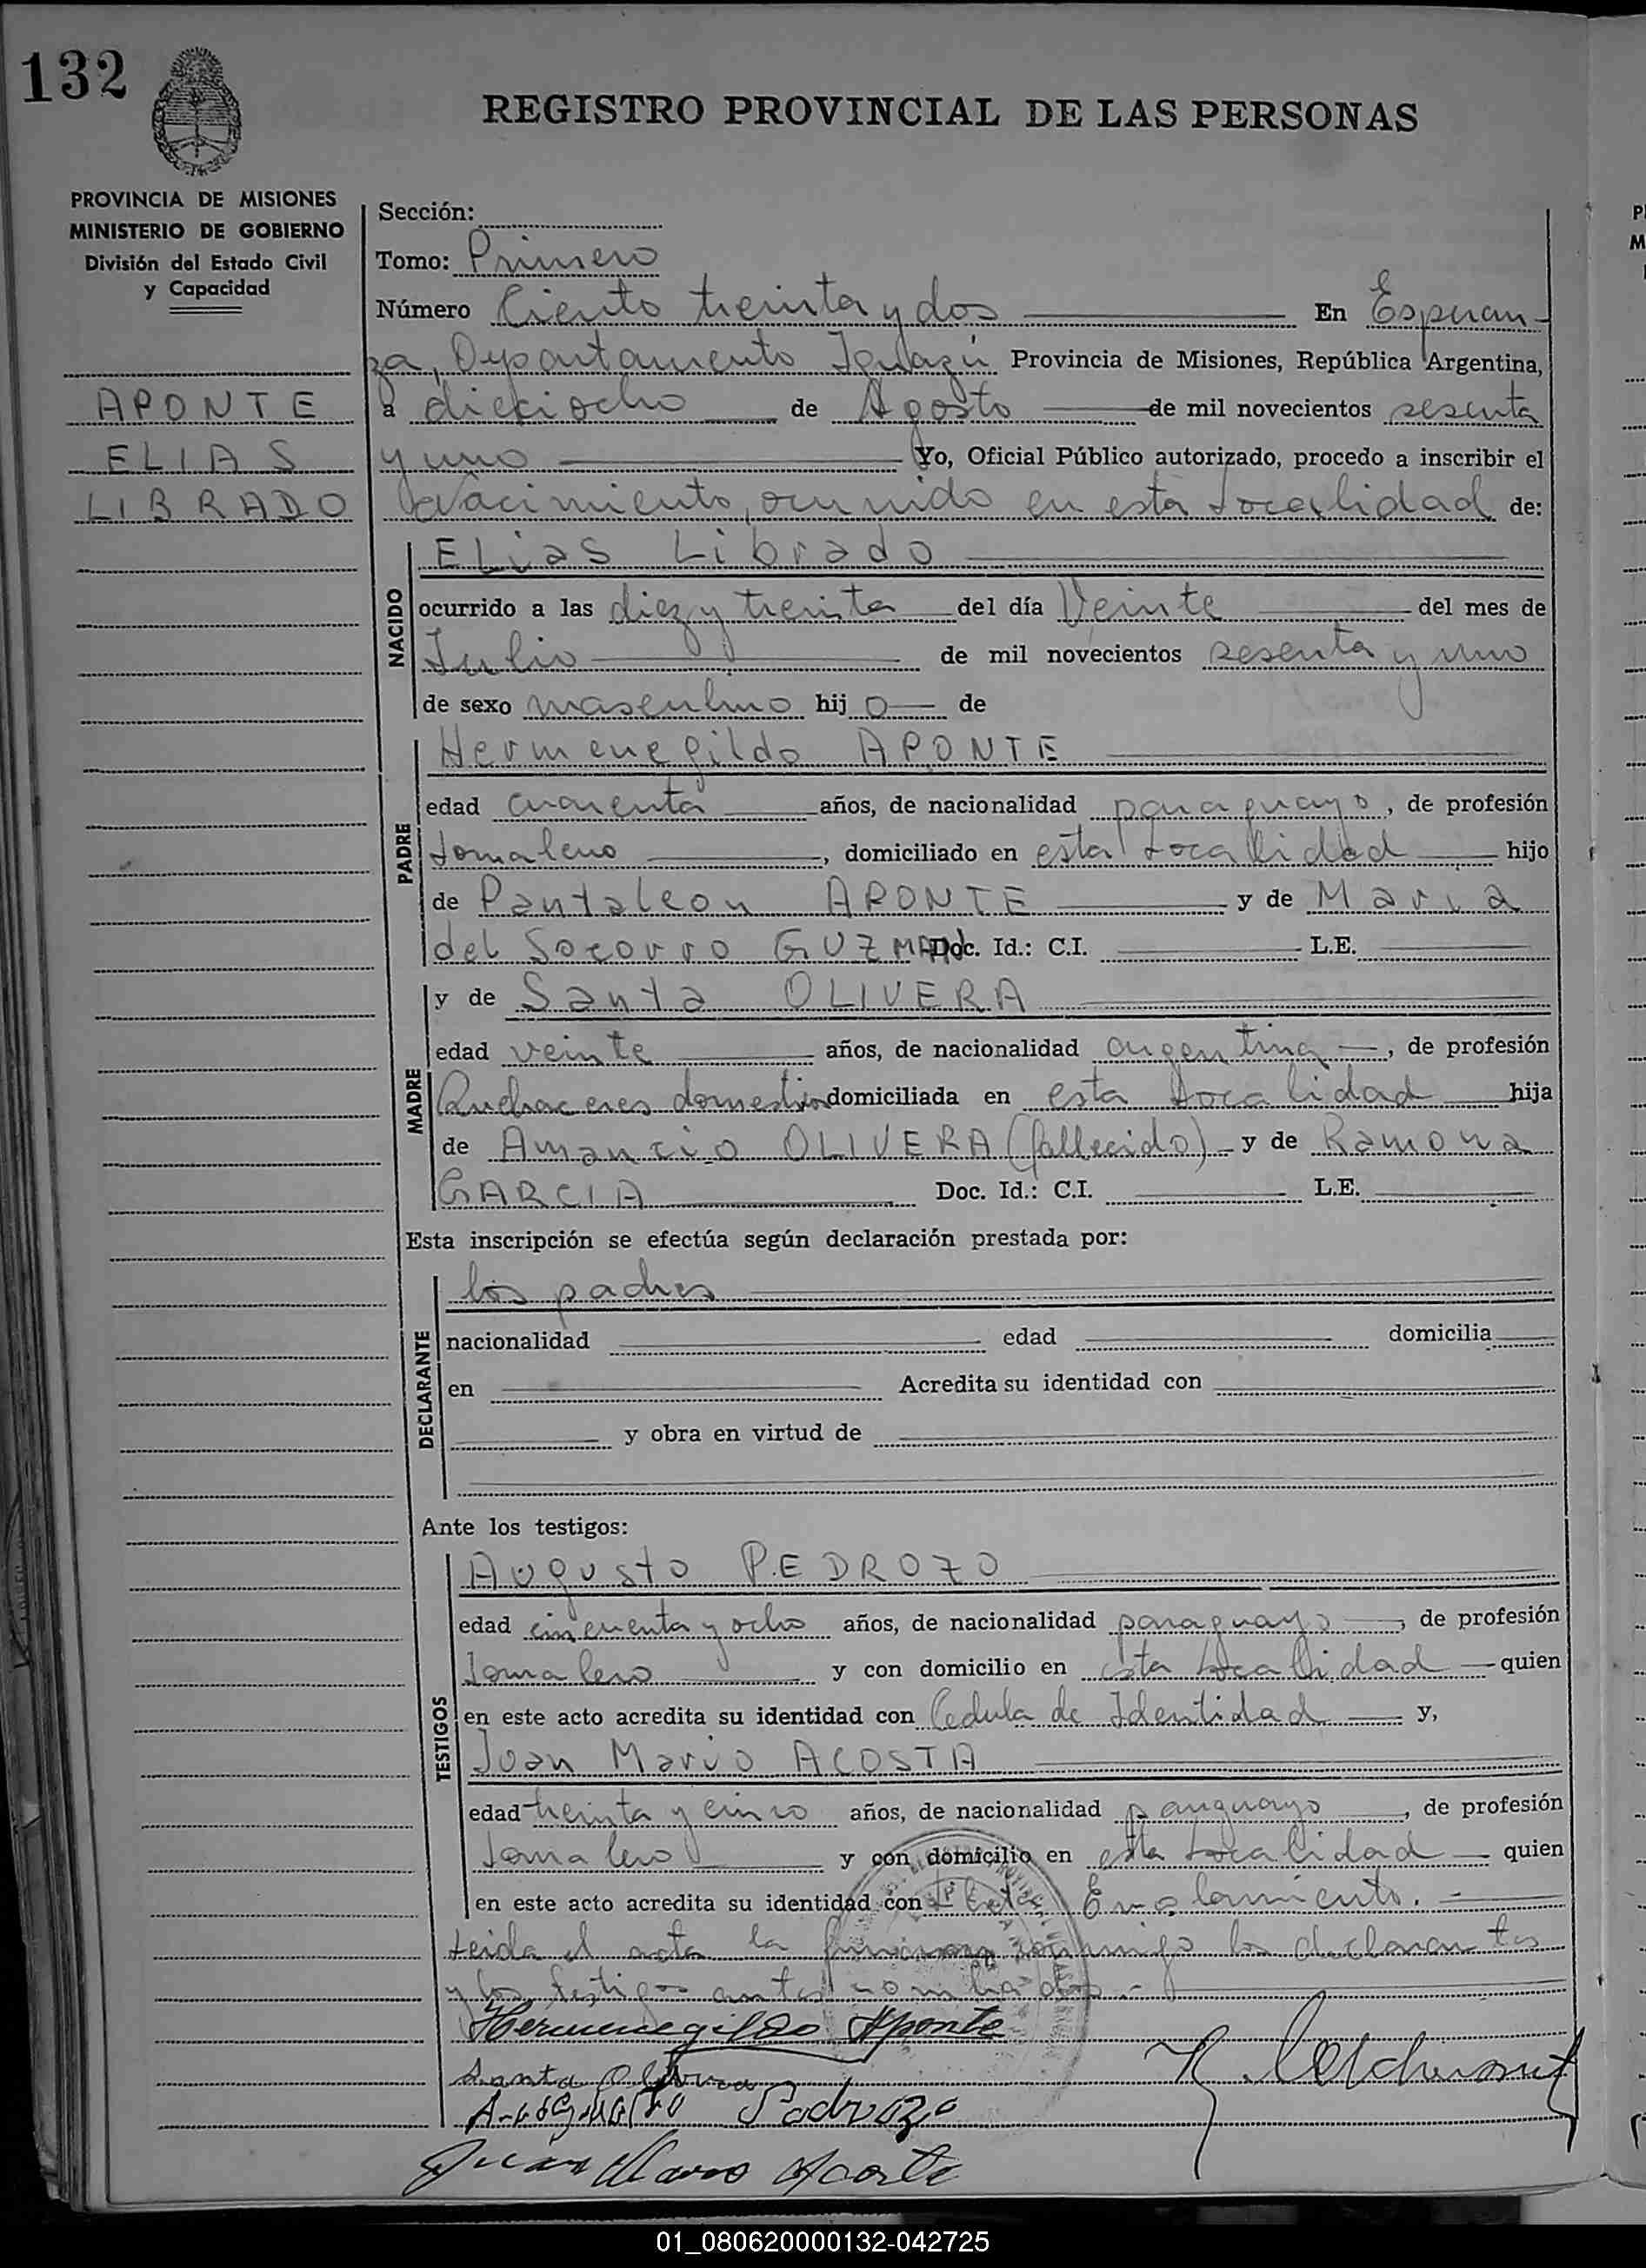 132
REGISTRO PROVINCIAL DE LAS PERSONAS
PROVINCIA DE MISIONES
MINISTERIO DE GOBIERNO
División del Estado Civil
y Capacidad
APONTE
ELIAS
LIBRADO
Sección:
Tomo: Primero
Número Ciento treinta y dos En Esperan-
za, Departamento Iguazú Provincia de Misiones, República Argentina,
a dieciocho de Agosto de mil novecientos sesenta
y uno Yo, Oficial Público autorizado, procedo a inscribir el
Nacimiento, ocurrido en esta Localidad de:
NACIDO
Elias Librado
ocurrido a las diez y treinta del día Veinte del mes de
Julio de mil novecientos sesenta y uno
de sexo masculino hij o de
PADRE
Hermenegildo APONTE
edad cuarenta años, de nacionalidad paraguayo, de profesión
Jornalero, domiciliado en esta Localidad hijo
de Pantaleon APONTE y de Maria
del Socorro GUZMAN Doc. Id.: C.I. L.E.
MADRE
y de Santa OLIVERA
edad veinte años, de nacionalidad argentina, de profesión
Quehaceres domestico domiciliada en esta Localidad hija
de Amancio OLIVERA (fallecido) y de Ramona
GARCIA Doc. Id.: C.I. L.E.
Esta inscripción se efectúa según declaración prestada por:
DECLARANTE
los padres
nacionalidad edad domicilia
en Acredita su identidad con
y obra en virtud de
Ante los testigos:
TESTIGOS
Augusto PEDROZO
edad cincuenta y ocho años, de nacionalidad paraguayo, de profesión
Jornalero y con domicilio en esta Localidad quien
en este acto acredita su identidad con Cedula de Identidad y,
Juan Mario ACOSTA
edad treinta y cinco años, de nacionalidad paraguayo, de profesión
Jornalero y con domicilio en esta Localidad quien
en este acto acredita su identidad con Enrolamiento.
Leida el acta la conmigo los declarantes
y los testigos antes nombrados.-
Hermenegildo Aponte
Santa Olivera
Pedrozo
Juan Mario Acosta
01_080620000132-042725